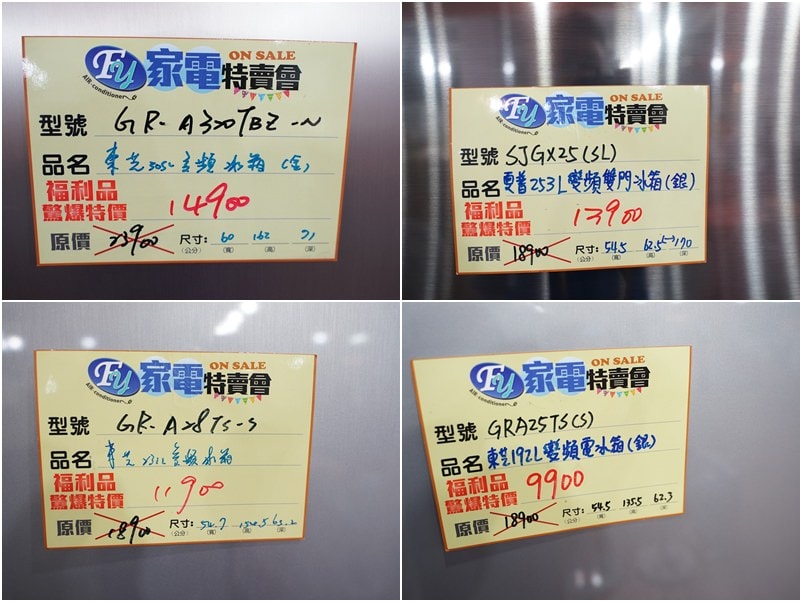 FU 家電特賣會 ON SALE
AIR-conditioner
型號 GR-A320TBZ-N
品名 東芝305L變頻冰箱(金)
福利品
驚爆特價 14900
原價 23900 尺寸: 60 162 71
(公分) (寬) (高) (深)
FU 家電特賣會 ON SALE
AIR-conditioner
型號 SJGX25(SL)
品名 夏普253L變頻雙門冰箱(銀)
福利品
驚爆特價 13900
原價 18900 尺寸: 54.5 62.5 170
(公分) (寬) (高) (深)
FU 家電特賣會 ON SALE
AIR-conditioner
型號 GR-A28TS-S
品名 東芝231L變頻冰箱
福利品
驚爆特價 11900
原價 18900 尺寸: 54.7
(公分) (寬) (高) (深)
FU 家電特賣會 ON SALE
AIR-conditioner
型號 GRA25TS(S)
品名 東芝192L變頻電冰箱(銀)
福利品
驚爆特價 9900
原價 18900 尺寸: 54.5 135.5 62.3
(公分) (寬) (高) (深)